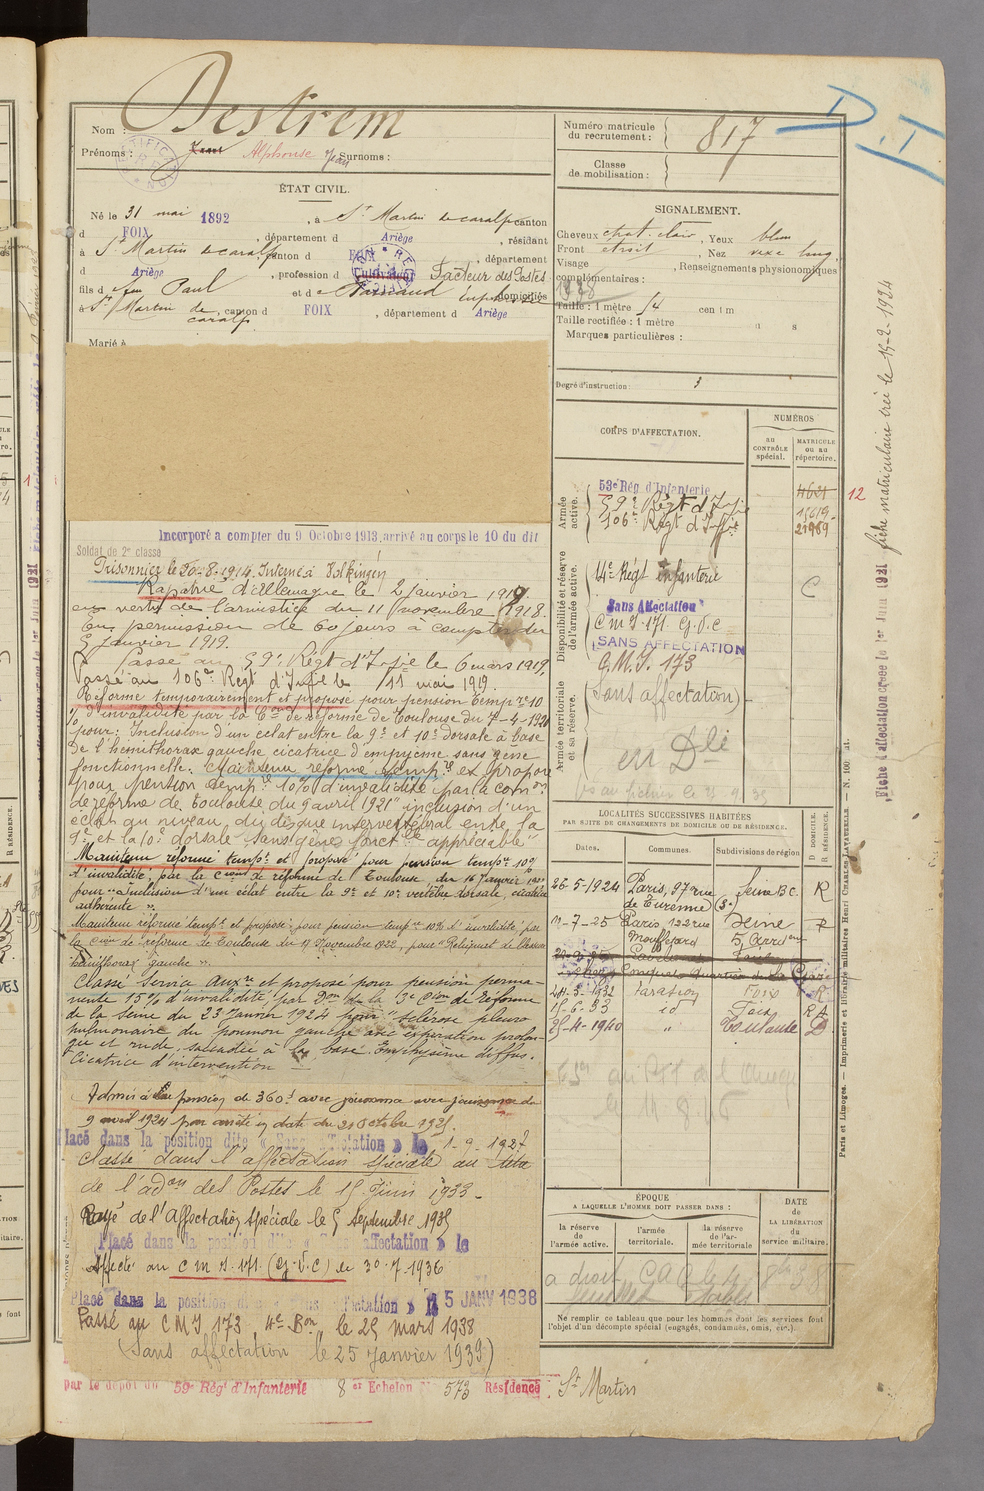 Nom : Destrem
Prénoms : Jean Alphonse Jean Surnoms :
ÉTAT CIVIL.
Né le 31 mai 1892, à St Martin de caralp canton
d FOIX, département d Ariège, résidant
à St Martin de caralp canton d FOIX, département
d Ariège, profession d Cultivateur Facteur des Postes
fils d feu Paul et d domiciliés
à St Martin de caralp, canton d FOIX, département d Ariège
Marié à
Numéro matricule du recrutement : 817
Classe de mobilisation :
D
I
SIGNALEMENT.
Cheveux chat. clair, Yeux bleu
Front étroit, Nez
Visage, Renseignements physionomiques
complémentaires :
Taille : 1 mètre 54 cent m
Taille rectifiée : 1 mètre
Marques particulières :
Degré d'instruction : 3
CORPS D'AFFECTATION.
NUMÉROS
au CONTRÔLE spécial.
MATRICULE ou au répertoire.
Armée active.
53e Rég. d'Infanterie
59e Régt d'Infie
106e Régt d'Infie
4621
15619
21989
12
Disponibilité et réserve de l'armée active.
14e Régt infanterie
C
Sans Affectation
C m I 171. G.V.C
SANS AFFECTATION
C.M.I. 173
Armée territoriale et sa réserve.
(Sans affectation)
en Dli
Incorporé à compter du 9 Octobre 1913, arrivé au corps le 10 du dit
Soldat de 2e classe
Prisonnier le 30-8-1914. Interné à
Rapatrié d'Allemagne le 2 janvier 1919
en vertu de l'armistice du 11 novembre 1918.
En permission de 60 jours à compter du
5 janvier 1919.
Passé au 59e Régt d'Infie le 6 mars 1919,
Passé au 106e Régt d'Infie le 11 mai 1919.
Réformé temporairement et proposé pour pension temp re 10
% d'invalidité par la Con de réforme de Toulouse du 7-4-1920
pour : Inclusion d'un éclat entre la 9e et 10e dorsale à base
de l'hémithorax gauche cicatrice d'empyème sans gêne
fonctionnelle. Maintenu réformé temp re et proposé
pour pension temp re 10% d'invalidité par la com on
de réforme de Toulouse du 9 avril 1921 "inclusion d'un
éclat au niveau du disque intervertébral entre la
9e et la 10e dorsale sans gêne fonct lle appréciable"
Maintenu réformé tempre et proposé pour pension tempre 10%
d'invalidité, par la Cion de réforme de Toulouse, du 16 Janvier
pour "Inclusion d'un éclat entre la 9e et 10e vertèbre dorsale, cicatrice
adhérente".
Maintenu réformé tempre et proposé pour pension tempre 10% d'invalidité, par
la Cion de réforme de Toulouse du 11 Novembre 1922, pour "Reliquat de
hémithorax gauche".
Classé Service Auxre et proposé pour pension perma-
nente 15% d'invalidité par Don de la 3e Con de Réforme
de la Seine du 23 Janvier 1924 pour "Sclérose pleuro
pulmonaire du poumon gauche avec expiration prolon-
gée et rude, saccadée à la base. Emphysème diffus.
Cicatrice d'intervention
Admis à la pension de 360f avec jouissance du
9 avril 1924 par arrêté en date du 21 Octobre 1925.
Placé dans la position dite « Sans Affectation » le 1-9-1927
Classé dans l'affectation spéciale au titre
de l'adon des Postes le 15 Juin 1933-
Rayé de l'Affectation Spéciale le 5 septembre 1935
Placé dans la position dite « Sans affectation » le
Affecté au C M I. 171. (G.V.C) le 30.7.1936
Placé dans la position dite « Sans affectation » le 15 JANV 1938
Passé au C M I 173 4e Bon le 25 mars 1938
(Sans affectation le 25 Janvier 1939)
par le dépôt du 59e Régt d'Infanterie 8 er Echelon 573 Résidence St Martin
LOCALITÉS SUCCESSIVES HABITÉES
PAR SUITE DE CHANGEMENTS DE DOMICILE OU DE RÉSIDENCE.
Dates. Communes. Subdivisions de région D. DOMICILE. R. RÉSIDENCE.
26-5-1924 Paris, 97 rue de Turenne (3e) Seine B.C. R
11-7-25 Paris 122 rue Mouffetard Seine 5e Arrd R
24-3-1932 Foix R
15-6-33 id Foix R A
25-4-1940 " Toulouse D
ÉPOQUE
A LAQUELLE L'HOMME DOIT PASSER DANS :
la réserve de l'armée active.
l'armée territoriale.
la réserve de l'armée territoriale
DATE DE LA LIBÉRATION du service militaire.
Ne remplir ce tableau que pour les hommes dont les services font
l'objet d'un décompte spécial (engagés, condamnés, omis, etc.).
fiche matriculaire créé le 15-2-1924
Fiche d'affectation créée le 1er Juin 1931
Paris et Limoges. — Imprimerie et librairie militaires Henri CHARLES-LAVAUZELLE. — N. 100